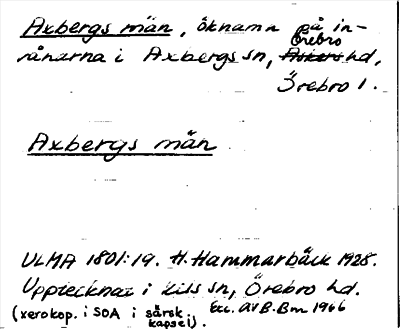 Axbergs män, öknamn på in-
vånarna i Axbergs sn, Örebro hd,
Örebro l.
Axbergs män
ULMA 1801:19. H. Hammarbäck 1928.
Upptecknat i Kils sn, Örebro hd.
(xerokop. i SOA i särsk. kapsel). Exc. AVB. Bm 1966